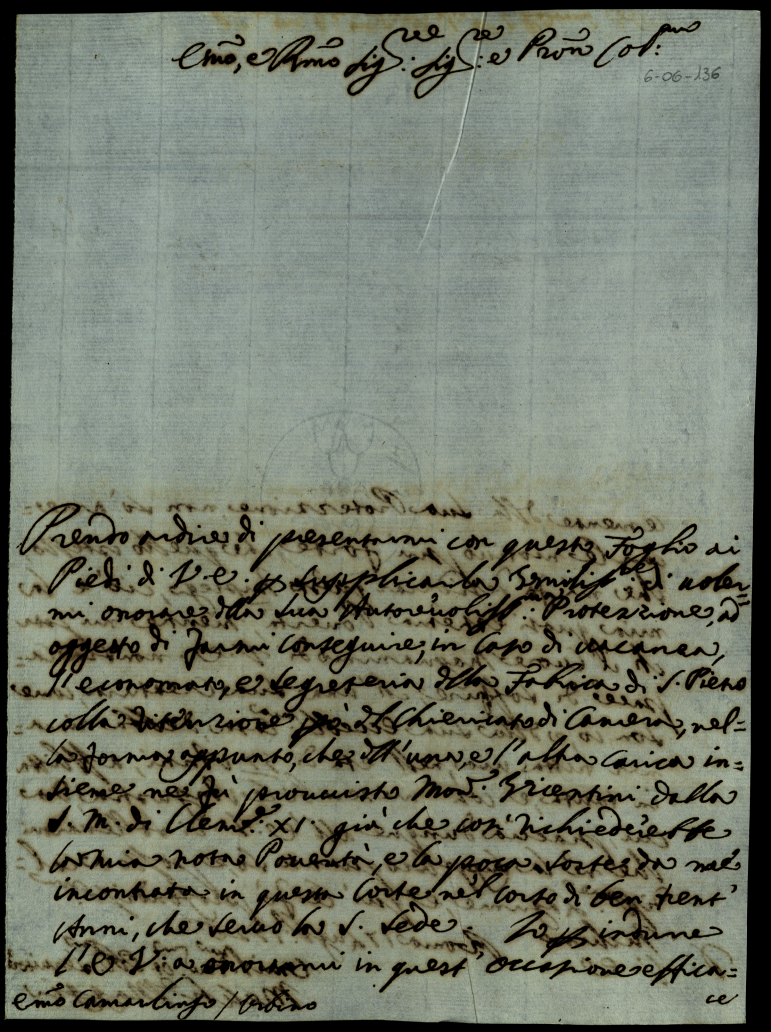 Emo, e Rmo Sig.re Sig.re e Pron Col.mo
6-06-136
Prendo ardire di presentarmi con questo Foglio ai
Piedi di V. E. p supplicarla Umiliss.te di voler=
mi onorare dlla sua Autorevoliss.ma Protezzione, ad
oggetto di farmi conseguire, in Caso di vacanza,
l'economato, e Segreteria dlla Fabrica di S. Pietro
colla ritenzione però del Chiericato di Camera, nel=
la forma appunto, che dell'una, e l'altra carica in=
sieme ne fù provvisto Mon.r Vicentini dalla
S. M. di Clem.te XI. già che così richiederebbe
la mia nota Povertà, e la poca sorte da me
incontrata in questa Corte nel corso di ben trent'
Anni, che servo la S. Sede. Io p indurre
l'E. V. a onorarmi in quest' occasione effica=
ce
Emo Camarlingo / Urbino